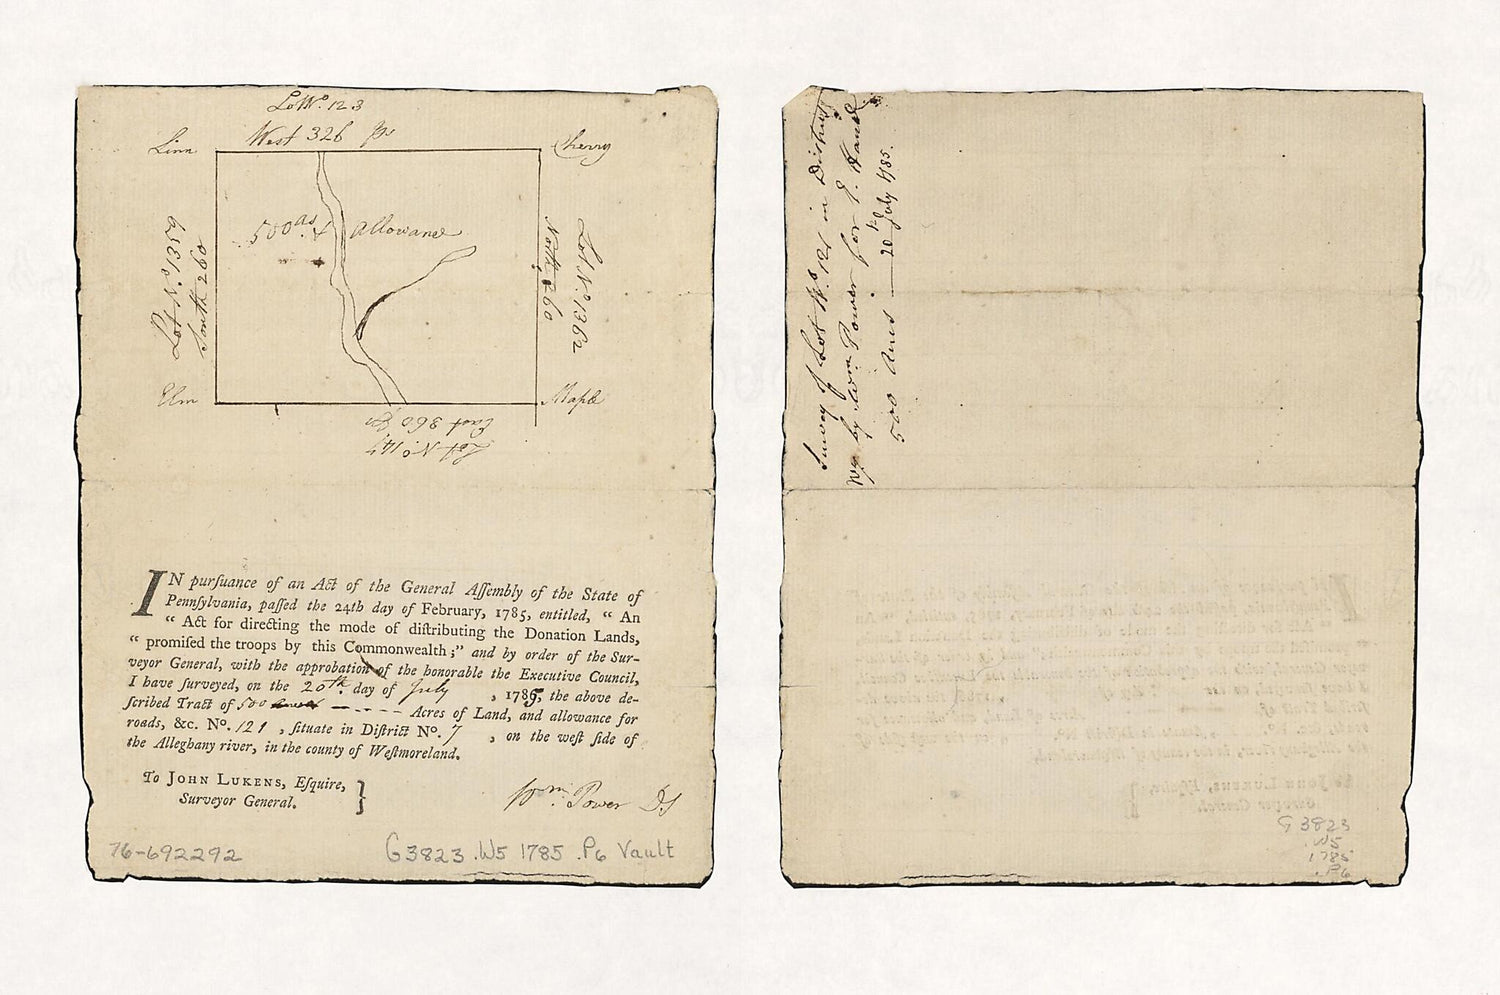 Lot No. 123
West 326 ps
Linn
Cherry
500 as. & allowance
Lot No. 1359
South 260
North 260
Lot No. 1362
Elm
Maple
East 360 ps
Lot No. 147
IN pursuance of an Act of the General Assembly of the State of
Pennsylvania, passed the 24th day of February, 1785, entitled, “ An
“ Act for directing the mode of distributing the Donation Lands,
“ promised the troops by this Commonwealth;” and by order of the Sur-
veyor General, with the approbation of the honorable the Executive Council,
I have surveyed, on the 20th. day of July , 1785, the above de-
scribed Tract of 500 - - - - - Acres of Land, and allowance for
roads, &c. No. 121 , situate in District No. 7 , on the west side of
the Alleghany river, in the county of Westmoreland.
To JOHN LUKENS, Esquire, }
Surveyor General.
Wm. Power DS
76-692292
G3823 .W5 1785 .P6 Vault
Survey of Lot No. 121 in District
No 7 by Wm. Power for E. Hand
500 Acres — 20th July 1785.
G 3823
.W5
1785
.P6